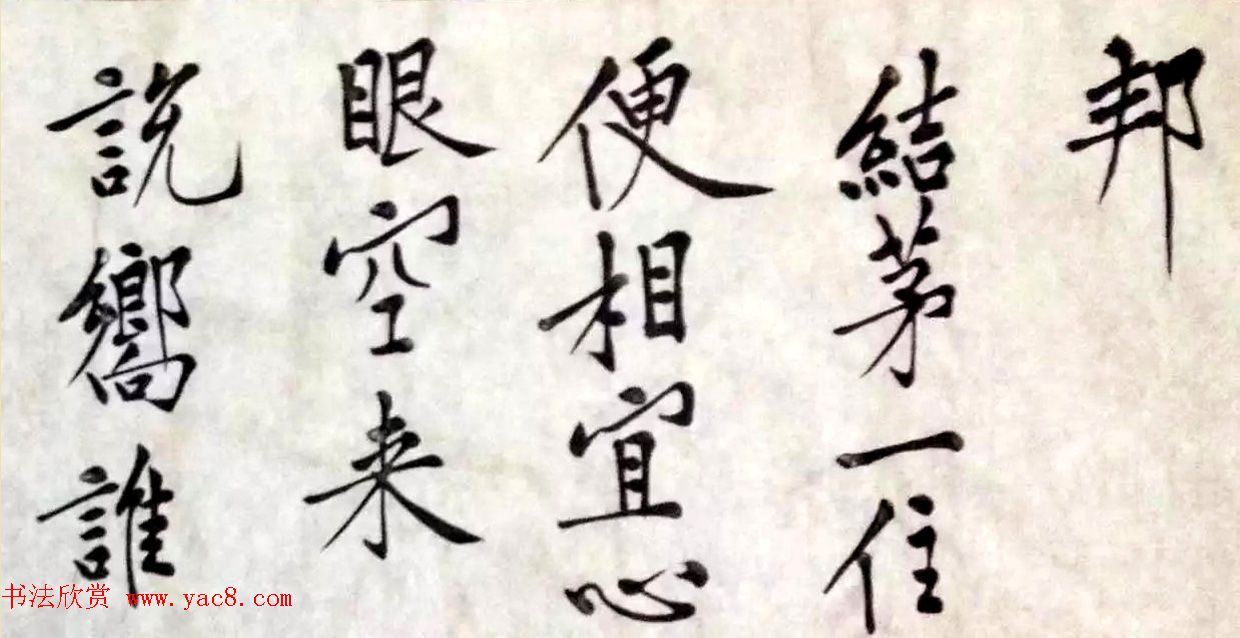 邦
結茅一住
便相宜心
眼空来
說嚮誰
书法欣赏 www.yac8.com